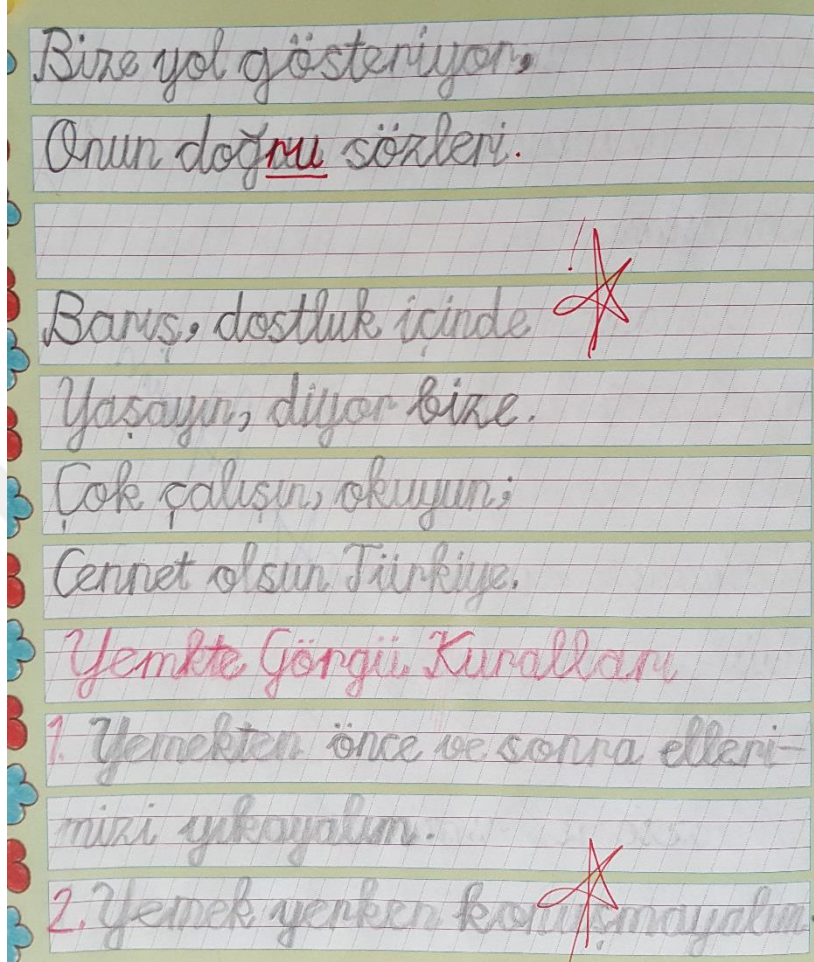 Bize yol gösteriyor,
Onun doğru sözleri.
Barış, dostluk içinde
Yaşayın, diyor bize.
Çok çalışın, okuyun;
Cennet olsun Türkiye.
Yemkte Görgü Kuralları
1. Yemekten önce ve sonra elleri-
mizi yıkayalım.
2. Yemek yerken konuşmayalım.